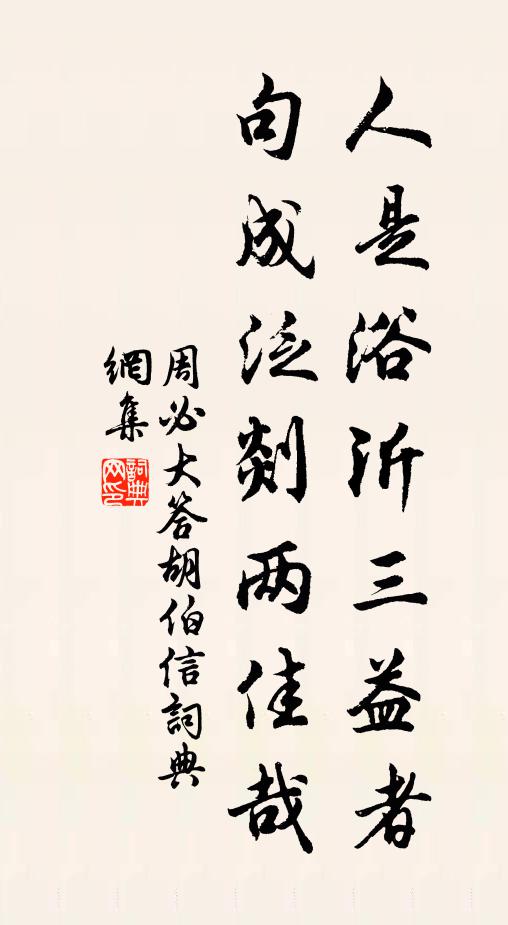 人是浴沂三益者
句成泛剡两佳哉
周必大答胡伯信詞典
網集
詞典
网印